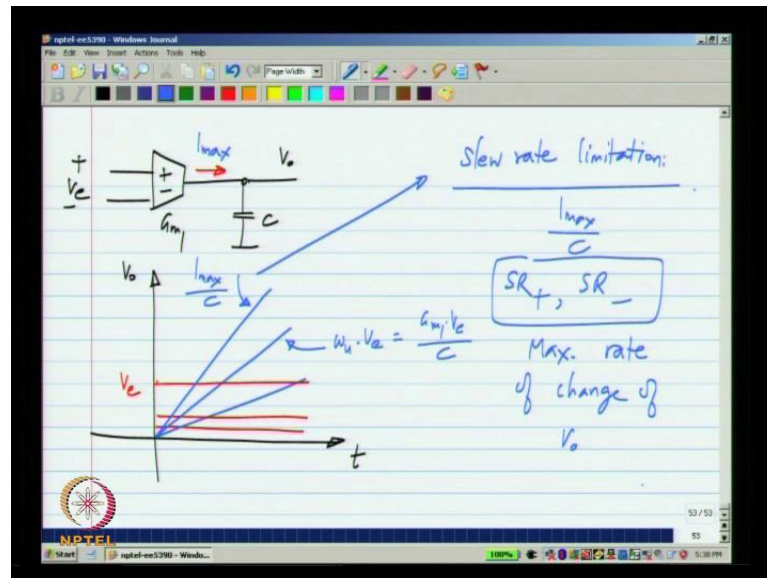 nptel-ee5390 - Windows Journal
File Edit View Insert Actions Tools Help
Page Width
B I
Imax
Vo
+
Ve
-
+
-
Gm1
C
Slew rate limitation:
Imax
C
SR+, SR-
Max. rate
of change of
Vo
Vo
Imax
C
ωu.Ve = Gm1.Ve
C
Ve
t
53 / 53
53
NPTEL
Start
nptel-ee5390 - Windo...
100%
5:38 PM